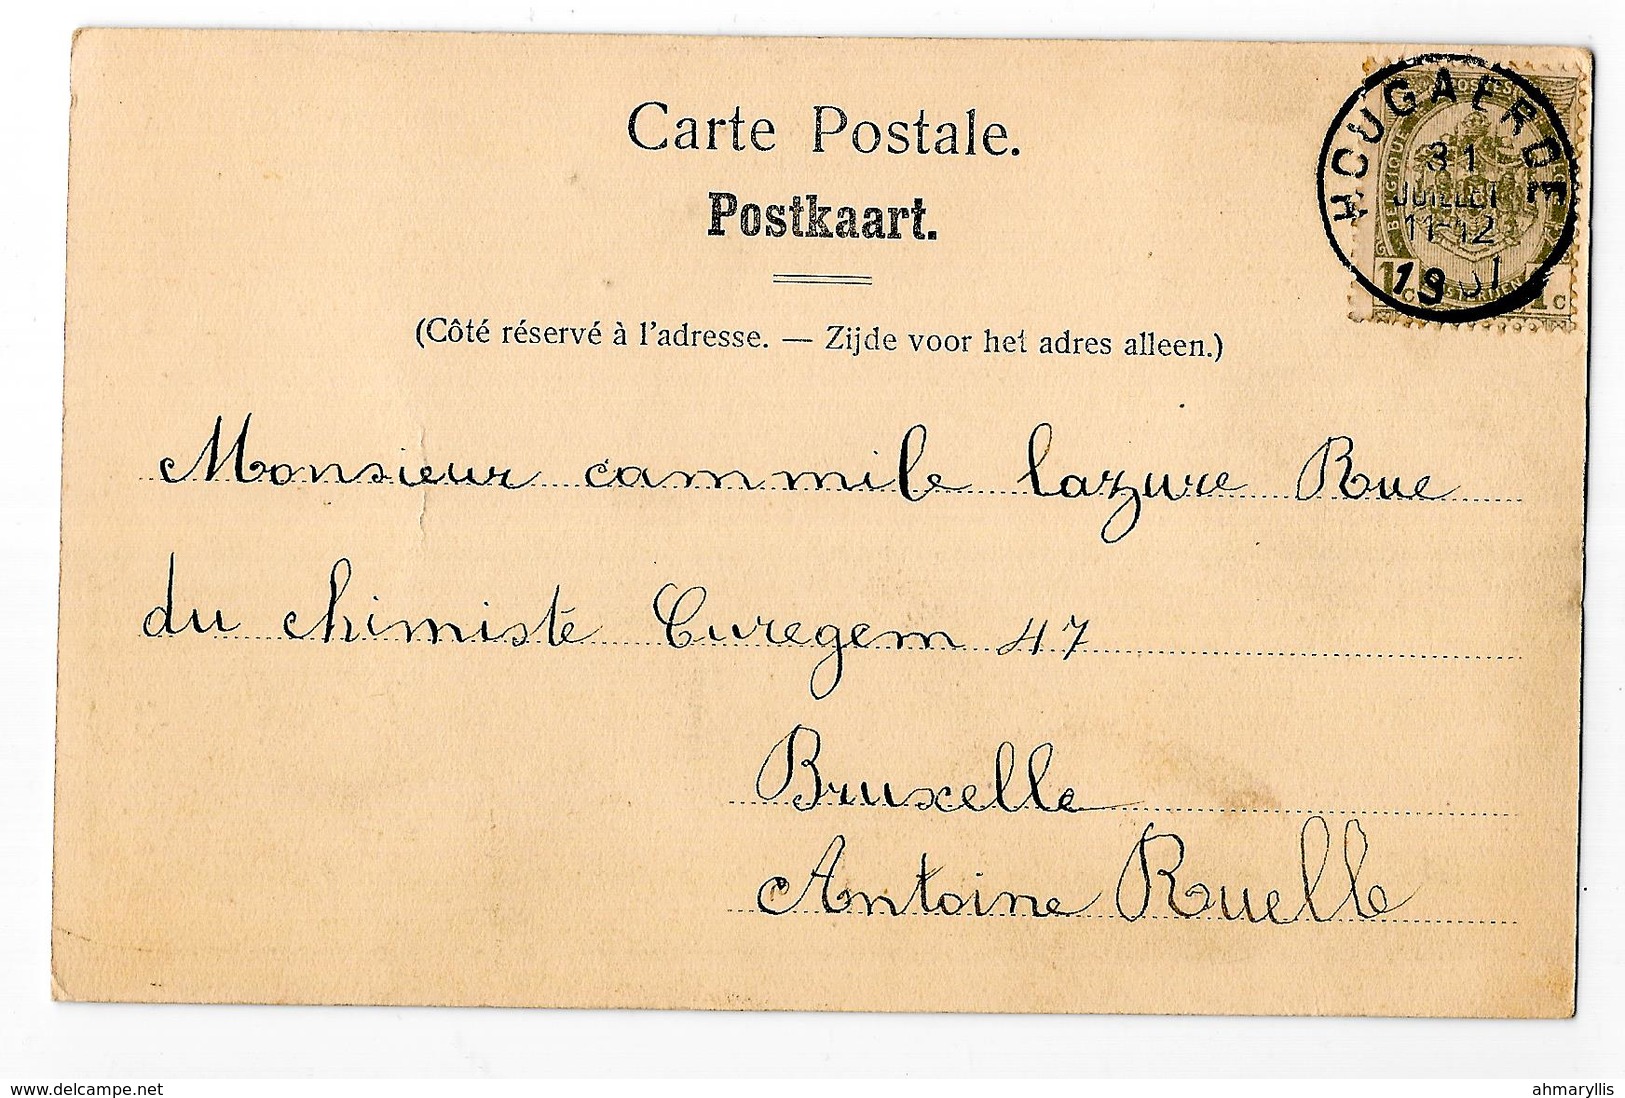 Carte Postale.
Postkaart.
(Côté réservé à l'adresse. — Zijde voor het adres alleen.)
HOUGAERDE
31
JUILLET
11-12
1901
POSTES
BELGIQUE
1 C 1 C
Monsieur cammile lazure Rue
du chimiste Curegem 47
Bruxelle
Antoine Ruelle
www.delcampe.net
ahmaryllis